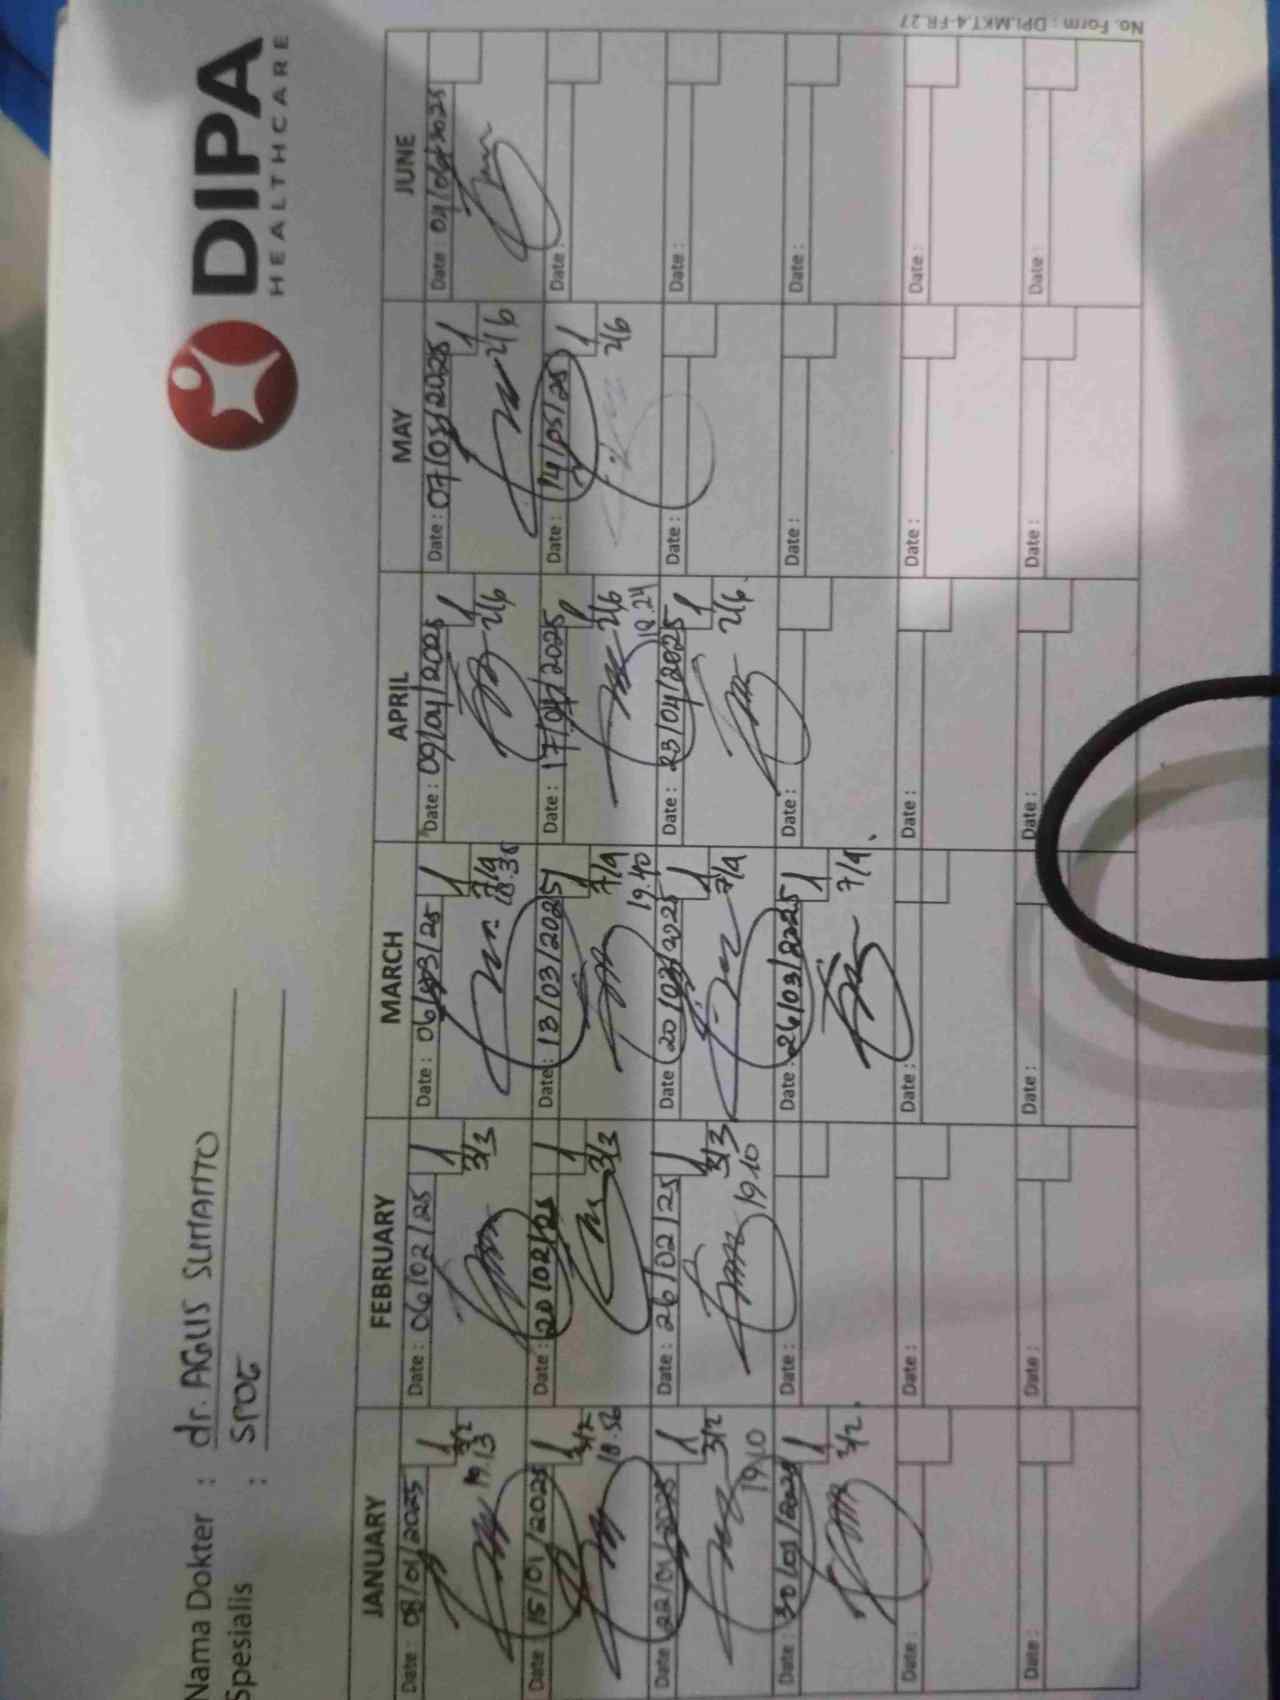 DIPA
HEALTHCARE
Nama Dokter : dr. AGUS SUMANTO
Spesialis : SPOT
JANUARY FEBRUARY MARCH APRIL MAY JUNE
Date : 08/01/2025 1 Date : 06/02/25 1 Date : 06/03/25 1 Date : 09/04/2025 1 Date : 07/05/2025 1 Date : 04/06/2025
3/2 3/3 7/4 2/6 2/6
19.13 18.38
Date : 15/01/2025 1 Date : 20/02/25 1 Date : 13/03/2025 1 Date : 17/04/2025 1 Date : 14/05/25 1 Date :
3/2 3/3 7/4 2/6 2/6
18.56 19.40 18.24
Date 22/01/2025 1 Date : 26/02/25 1 Date 20/03/2025 1 Date : 23/04/2025 1 Date : Date :
3/2 3/3 7/4 2/6.
19.10 19.10
Date : 30/01/2025 1 Date : Date : 26/03/2025 1 Date : Date : Date :
3/2. 7/4.
Date : Date : Date : Date : Date : Date :
Date : Date : Date : Date : Date : Date :
No. Form : DPI.MKT.4-FR.27